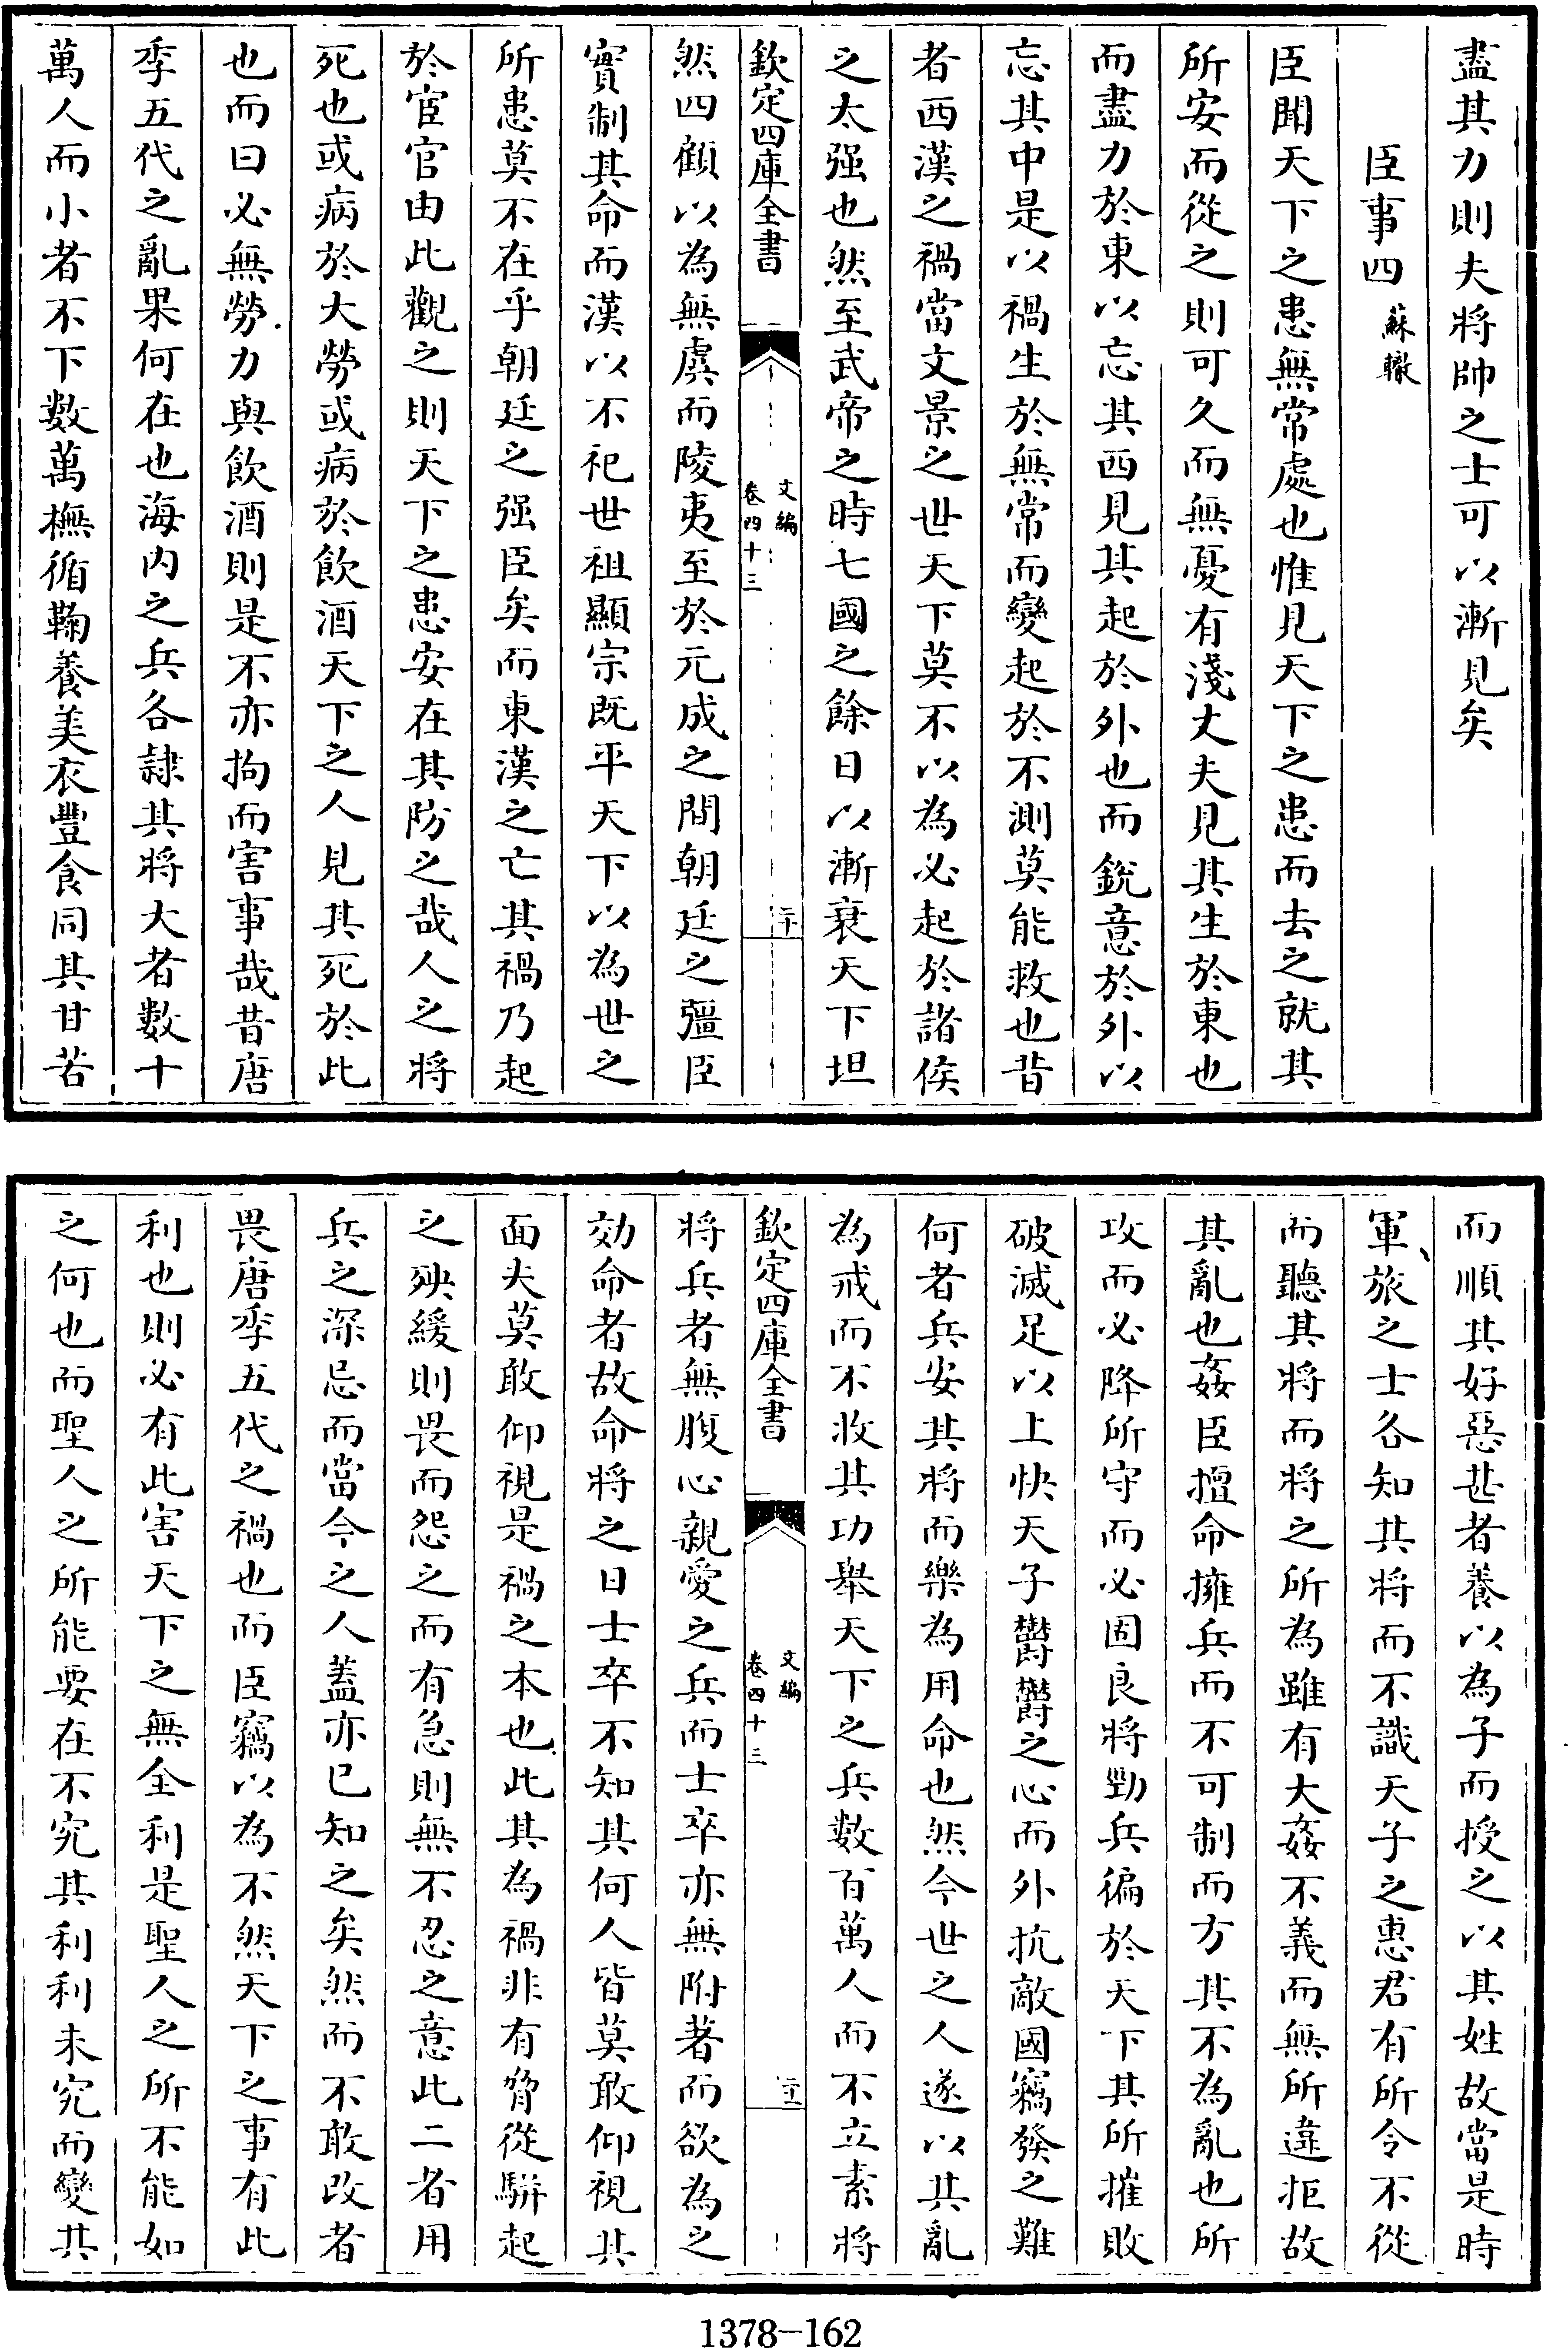 盡其力則夫將帥之士可以漸見矣
臣事四 蘇轍
臣聞天下之患無常處也惟見天下之患而去之就其
所安而從之則可久而無憂有淺丈夫見其生於東也
而盡力於東以忘其西見其起於外也而銳意於外以
忘其中是以禍生於無常而變起於不測莫能救也昔
者西漢之禍當文景之世天下莫不以為必起於諸侯
之太强也然至武帝之時七國之餘日以漸衰天下坦
欽定四庫全書
文編
卷四十三
二十
然四顧以為無虞而陵夷至於元成之間朝廷之彊臣
實制其命而漢以不祀世祖顯宗既平天下以為世之
所患莫不在乎朝廷之强臣矣而東漢之亡其禍乃起
於宦官由此觀之則天下之患安在其防之哉人之將
死也或病於大勞或病於飲酒天下之人見其死於此
也而曰必無勞力與飲酒則是不亦拘而害事哉昔唐
季五代之亂果何在也海內之兵各隷其將大者數十
萬人而小者不下數萬撫循鞠養美衣豐食同其甘苦
而順其好惡甚者養以為子而授之以其姓故當是時
軍旅之士各知其將而不識天子之惠君有所令不從
而聽其將而將之所為雖有大姦不義而無所違拒故
其亂也姦臣擅命擁兵而不可制而方其不為亂也所
攻而必降所守而必固良將勁兵徧於天下其所摧敗
破滅足以上快天子欝欝之心而外抗敵國竊發之難
何者兵安其將而樂為用命也然今世之人遂以其亂
為戒而不收其功舉天下之兵數百萬人而不立素將
欽定四庫全書
文編
卷四十三
二十一
將兵者無腹心親愛之兵而士卒亦無附著而欲為之
効命者故命將之日士卒不知其何人皆莫敢仰視其
面夫莫敢仰視是禍之本也此其為禍非有脅從駢起
之殃緩則畏而怨之而有急則無不忍之意此二者用
兵之深忌而當今之人蓋亦已知之矣然而不敢改者
畏唐季五代之禍也而臣竊以為不然天下之事有此
利也則必有此害天下之無全利是聖人之所不能如
之何也而聖人之所能要在不究其利利未究而變其
1378-162